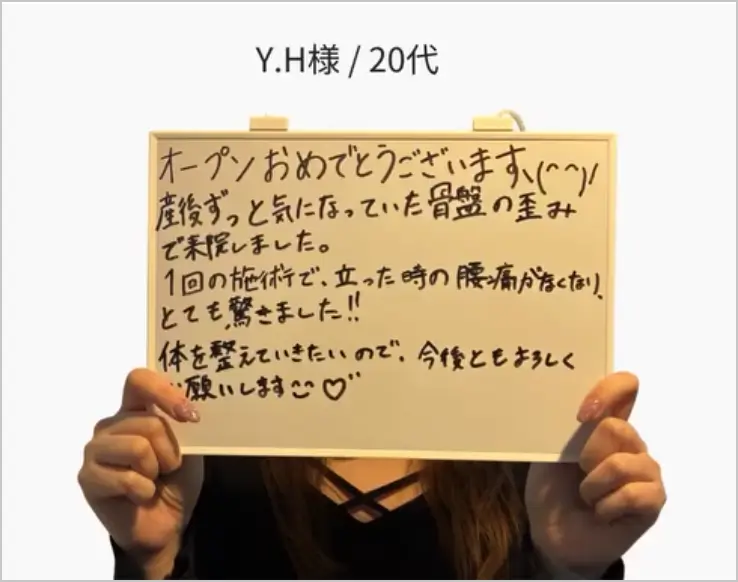 Y.H様 / 20代
オープンおめでとうございます、(^^)/
産後ずっと気になっていた骨盤の歪み
で来院しました。
1回の施術で、立った時の腰痛がなくなり、
とても驚きました!!
体を整えていきたいので、今後ともよろしく
お願いします♡